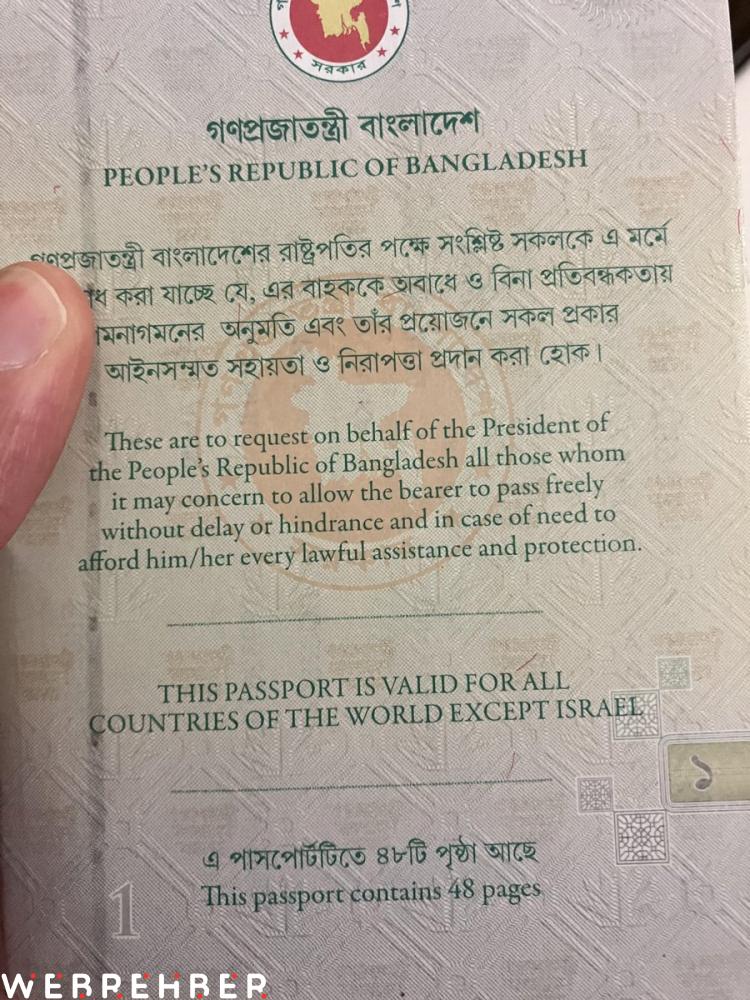 সরকার
গণপ্রজাতন্ত্রী বাংলাদেশ
PEOPLE'S REPUBLIC OF BANGLADESH
গণপ্রজাতন্ত্রী বাংলাদেশের রাষ্ট্রপতির পক্ষে সংশ্লিষ্ট সকলকে এ মর্মে
করা যাচ্ছে যে, এর বাহককে অবাধে ও বিনা প্রতিবন্ধকতায়
অনুমতি এবং তাঁর প্রয়োজনে সকল প্রকার
আইনসম্মত সহায়তা ও নিরাপত্তা প্রদান করা হোক।
These are to request on behalf of the President of
the People's Republic of Bangladesh all those whom
it may concern to allow the bearer to pass freely
without delay or hindrance and in case of need to
afford him/her every lawful assistance and protection.
THIS PASSPORT IS VALID FOR ALL
COUNTRIES OF THE WORLD EXCEPT ISRAEL
১
এ পাসপোর্টটিতে ৪৮টি পৃষ্ঠা আছে
This passport contains 48 pages
1
WEBREHBER